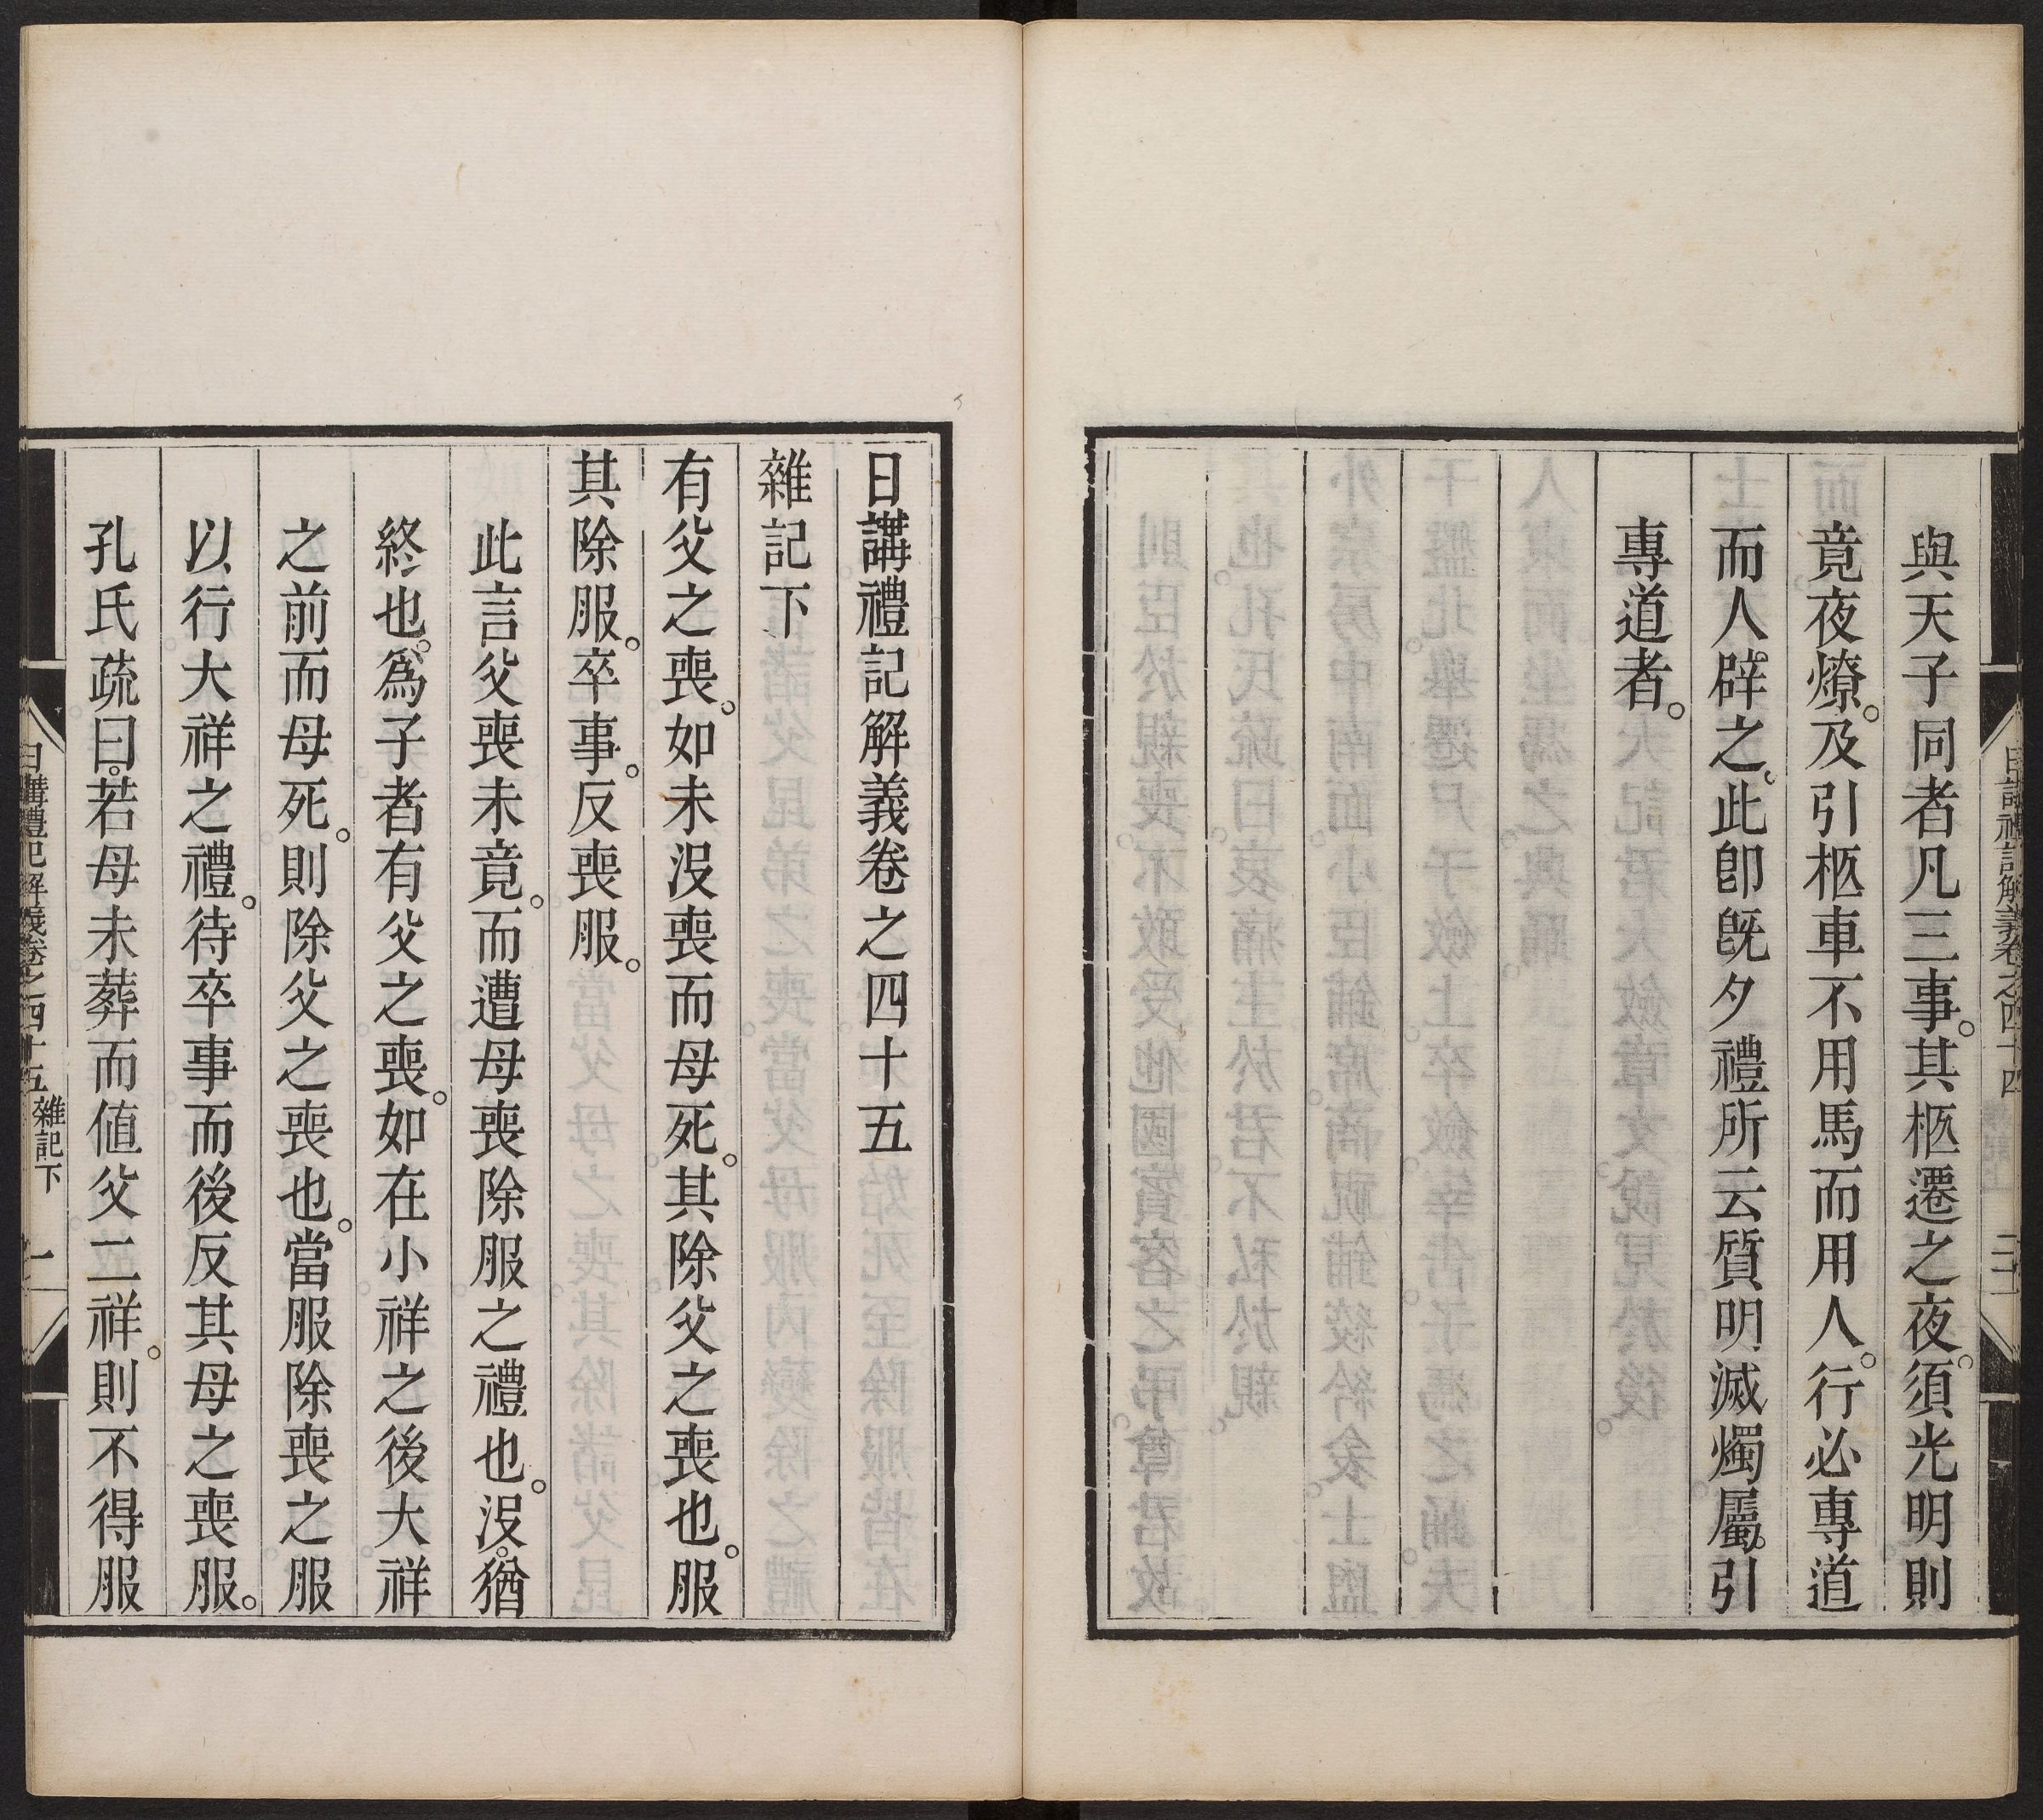 與天子同者凡三事。其柩遷之夜。須光明則
竟夜燎。及引柩車不用馬而用人。行必專道
而人辟之。此卽旣夕禮所云質明滅燭屬引
專道者。
日講禮記解義卷之四十四
日講禮記解義卷之四十五
雜記下
有父之喪。如未沒喪而母死。其除父之喪也。服
其除服。卒事。反喪服。
此言父喪未竟。而遭母喪除服之禮也。沒。猶
終也。爲子者有父之喪。如在小祥之後大祥
之前而母死。則除父之喪也。當服除喪之服
以行大祥之禮。待卒事而後反其母之喪服。
孔氏疏曰。若母未葬而値父二祥。則不得服
日講禮記解義卷之四十五 雜記下 一